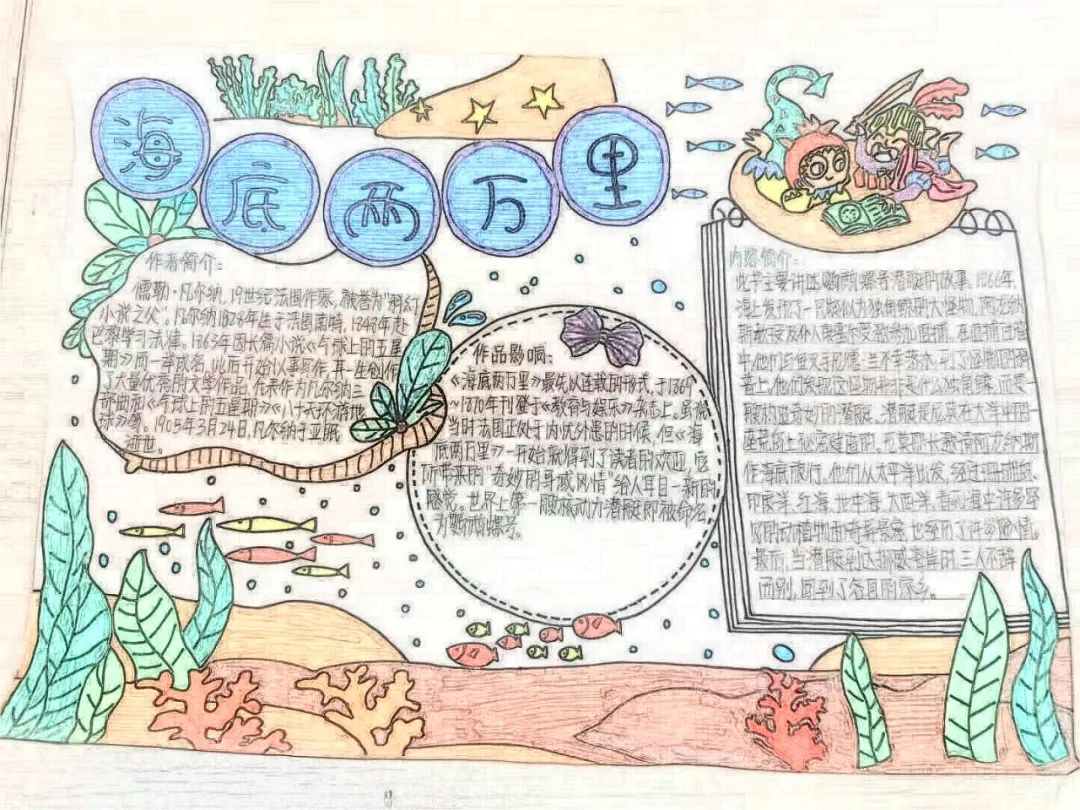 海底两万里
作者简介:
儒勒·凡尔纳,19世纪法国作家,被誉为"科幻
小说之父"。凡尔纳1828年生于法国南特,1848年赴
巴黎学习法律,1863年因长篇小说《气球上的五星
期》而一举成名,此后开始从事写作,其一生创作
了大量优秀的文学作品,代表作为凡尔纳三
部曲和《气球上的五星期》《八十天环游地
球》等。1905年3月24日,凡尔纳于亚眠
逝世。
作品影响:
《海底两万里》最先以连载的形式,于1869
~1870年刊登于《教育与娱乐》杂志上。虽说
当时法国正处于内忧外患的时候,但《海
底两万里》一开始就得到了读者的欢迎,它
所带来的"奇妙的异域风情"给人耳目一新的
感觉。世界上第一艘核动力潜艇即被命名
为鹦鹉螺号。
内容简介:
此书主要讲述鹦鹉螺号潜艇的故事。1866年,
海上发现了一只疑似为独角鲸的大怪物,阿龙纳
斯教授及仆人康塞尔受邀参加追捕。在追捕过程
中他们与鱼叉手尼德·兰不幸落水,到了怪物的脊
背上。他们发现这怪物并非是什么独角鲸,而是一
艘构造奇妙的潜艇。潜艇是尼莫在大洋中的一
座荒岛上秘密建造的,尼莫船长邀请阿龙纳斯
作海底旅行。他们从太平洋出发,经过珊瑚岛、
印度洋、红海、地中海、大西洋,看到海中许多罕
见的动植物和奇异景象,也经历了许多险情。
最后,当潜艇到达挪威海岸时,三人不辞
而别,回到了各自的家乡。